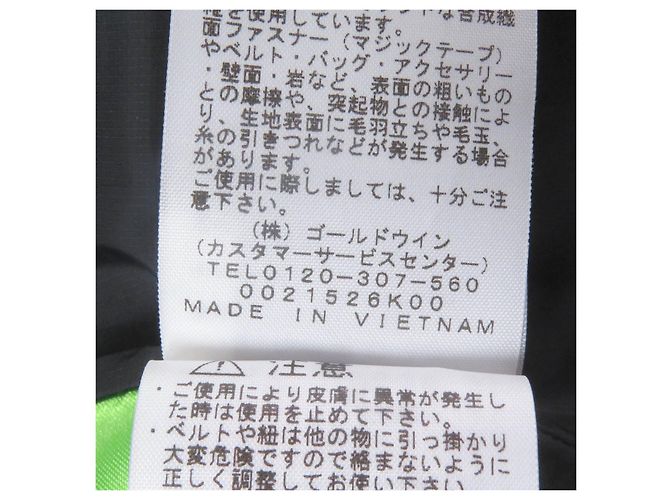 を使用しています。
面ファスナー(マジックテープ)
やベルト・バッグ・アクセサリー
・壁面・岩など、表面の粗いもの
との摩擦や、突起物との接触によ
り、生地表面に毛羽立ちや毛玉、
糸の引きつれなどが発生する場合
があります。
ご使用に際しましては、十分ご注
意下さい。
(株) ゴールドウイン
(カスタマーサービスセンター)
TEL0120-307-560
0021526K00
MADE IN VIETNAM
注意
・ご使用により皮膚に異常が発生し
た時は使用を止めて下さい。
・ベルトや紐は他の物に引っ掛かり
大変危険ですので絡まないように
正しく調整してお使い下さい。